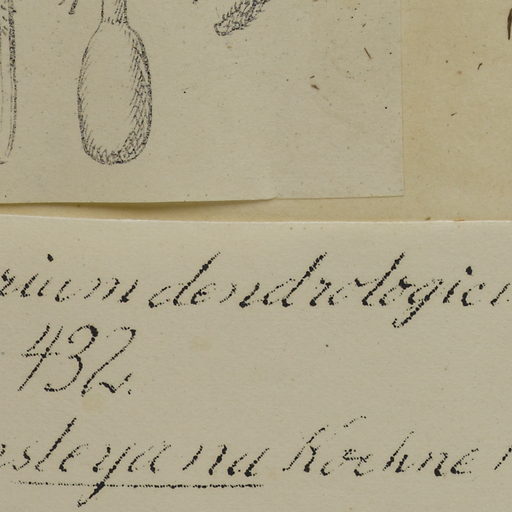 rium dendrologic
432.
sleyana Koehne